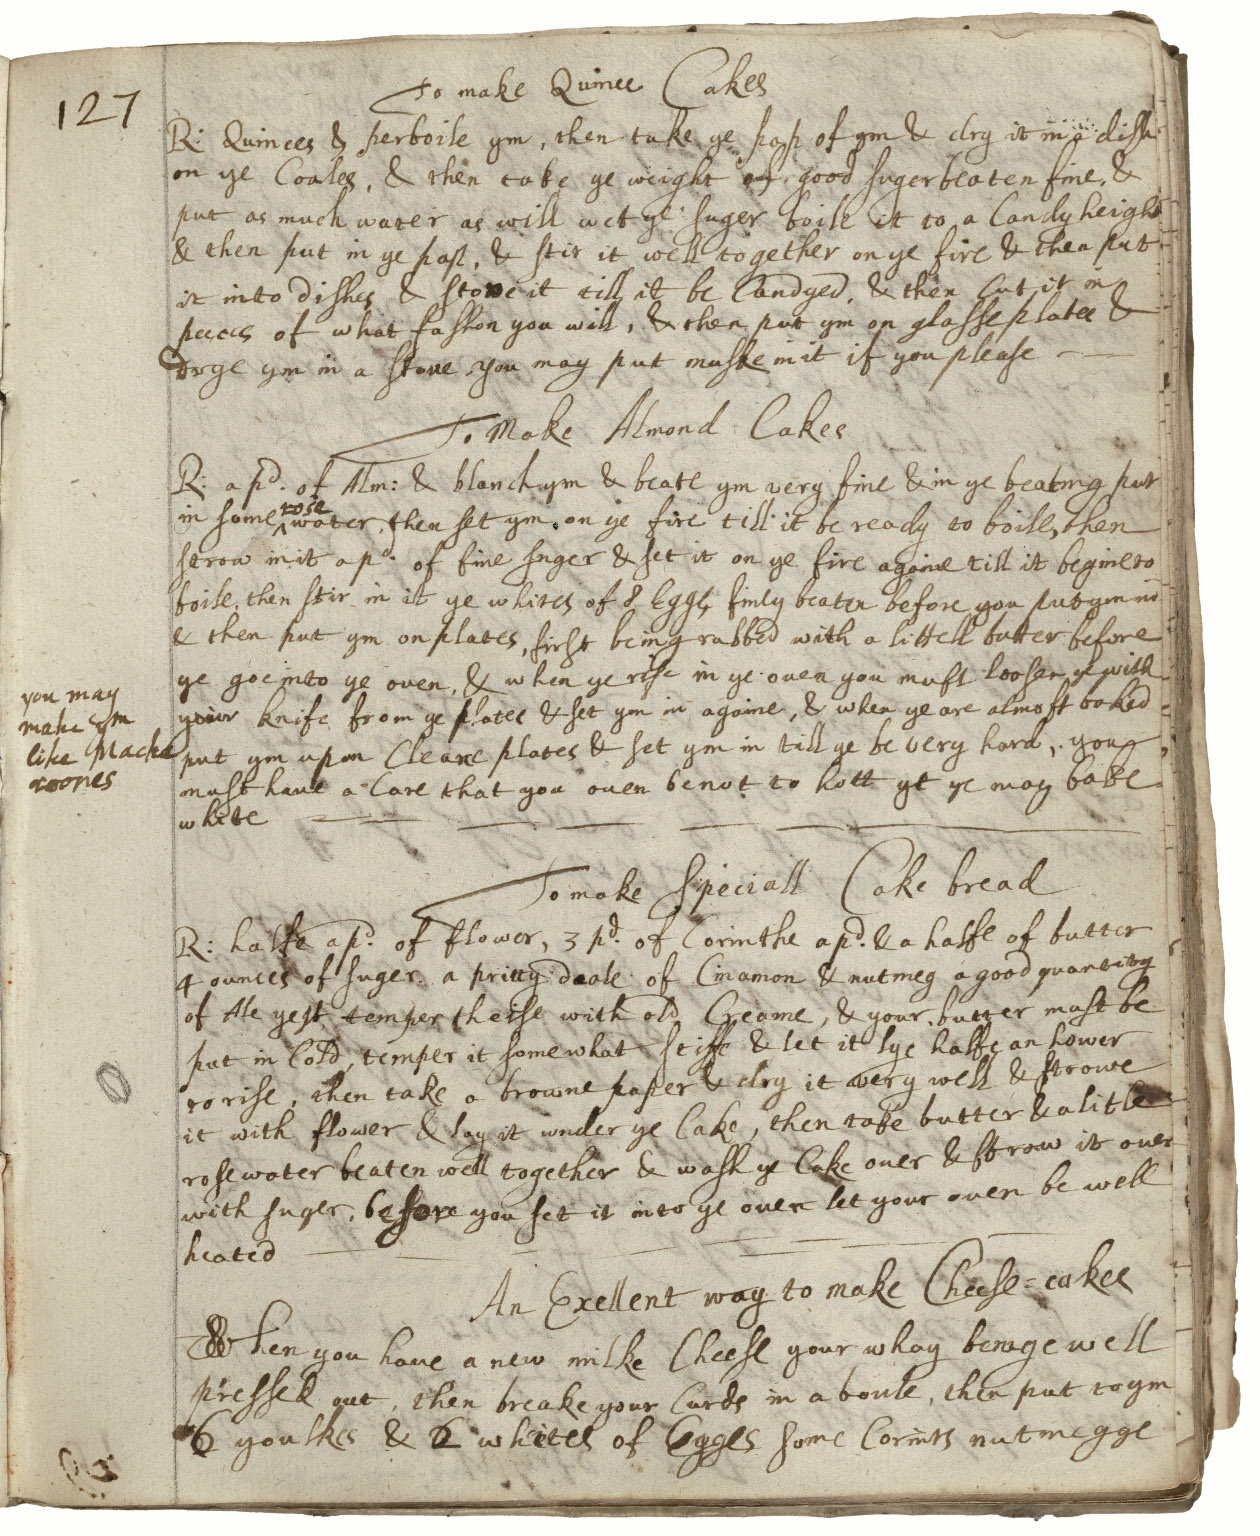 127
To make Quince Cakes
R: Quinces & perboile ym, then take ye pap of ym & dry it in a dish
on ye Coales, & then take ye weight of good suger beaten fine, &
put as much water as will wet ye suger boile it to a Candy height
& then put in ye pap, & stir it well together on ye fire & then put
it into dishes & stove it till it be Candyed, & then Cut it in
peeces of what fashon you will, & then put ym on glasse plates &
drye ym in a stove you may put muske in it if you please
To Make Almond Cakes
R: a pd. of Alm: & blanch ym & beate ym very fine & in ye beating put
in some rose water, then set ym on ye fire till it be ready to boile, then
strow in it a pd. of fine suger & set it on ye fire againe till it begine to
boile, then stir in it ye whites of 8 Eggs finly beaten before you put ym in
& then put ym on plates, first being rubbed with a littell butter before
ye goe into ye oven, & when ye rise in ye oven you must loosen ye with
your knife from ye plates & set ym in againe, & when ye are almost baked
you may
make ym
like Macka
roones
put ym upon Cleane plates & set ym in till ye be very hard, you
must have a Care that you oven be not to hott yt ye may bake
white
To make Speciall Cake bread
R: halfe a pd. of flower, 3 pd. of Corinthe a pd. & a halfe of butter
4 ounces of suger a pritty deale of Cinamon & nutmeg a good quantity
of Ale yest temper theise with old Creame, & your butter must be
put in Cold, temper it somewhat stiffe & let it lye halfe an hower
to rise, then take a browne paper & dry it very well & strowe
it with flower & lay it under ye Cake, then take butter & a litle
rose water beaten well together & wash ye Cake over & strow it over
with suger, before you set it into ye oven let your oven be well
heated
An Exellent way to make Cheese=cakes
When you have a new milke Cheese your whay beinge well
pressed out, then breake your Curds in a boule, then put to ym
6 youlkes & 2 whites of Egges some Corints nutmegge